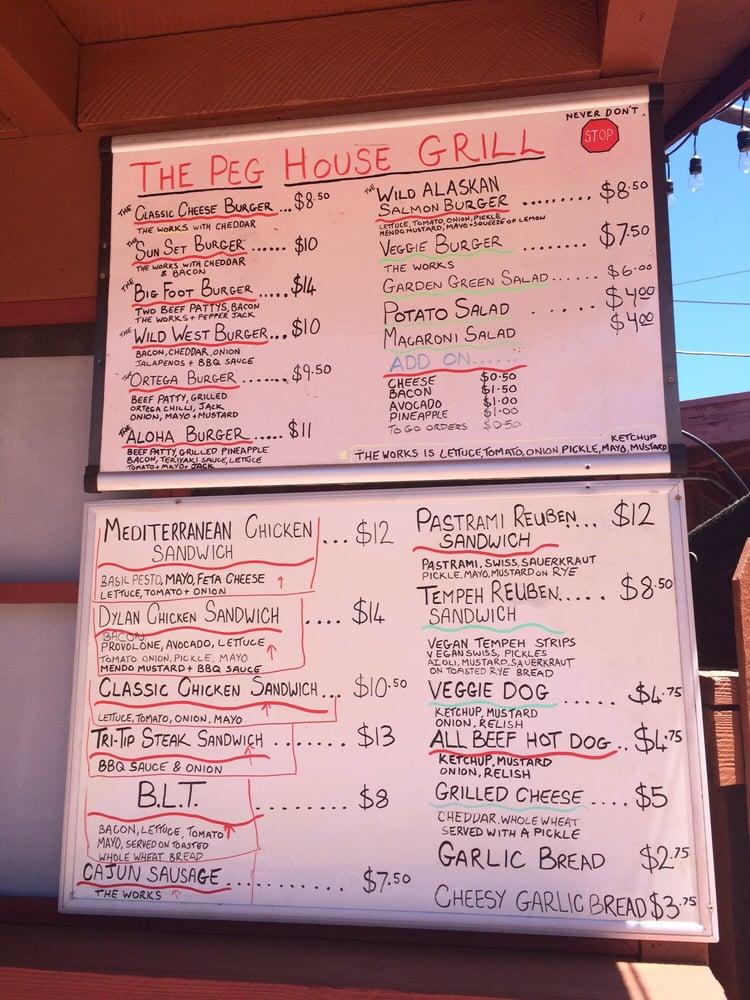 NEVER DON'T
STOP
THE PEG HOUSE GRILL
THE CLASSIC CHEESE BURGER ... $8.50
THE WORKS WITH CHEDDAR
THE SUN SET BURGER ...... $10
THE WORKS WITH CHEDDAR
& BACON
THE BIG FOOT BURGER ..... $14
TWO BEEF PATTYS, BACON
THE WORKS + PEPPER JACK
THE WILD WEST BURGER... $10
BACON, CHEDDAR, ONION
JALAPENOS + BBQ SAUCE
THE ORTEGA BURGER ....... $9.50
BEEF PATTY, GRILLED
ORTEGA CHILLI, JACK
ONION, MAYO + MUSTARD
THE ALOHA BURGER ..... $11
BEEF PATTY, GRILLED PINEAPPLE
BACON, TERIYAKI SAUCE, LETTUCE
TOMATO + MAYO + JACK
THE WILD ALASKAN
SALMON BURGER ......... $8.50
LETTUCE, TOMATO, ONION, PICKLE
MENDO MUSTARD, MAYO + SQUEEZE OF LEMON
VEGGIE BURGER ........ $7.50
THE WORKS
GARDEN GREEN SALAD...... $6.00
POTATO SALAD . . . . . $4.00
MACARONI SALAD $4.00
ADD ON......
CHEESE $0.50
BACON $1.50
AVOCADO $1.00
PINEAPPLE $1.00
TO GO ORDERS $0.50
KETCHUP
THE WORKS IS LETTUCE, TOMATO, ONION PICKLE, MAYO, MUSTARD
MEDITERRANEAN CHICKEN ... $12
SANDWICH
BASIL PESTO, MAYO, FETA CHEESE ↑
LETTUCE, TOMATO + ONION
DYLAN CHICKEN SANDWICH .... $14
BACON
PROVOLONE, AVOCADO, LETTUCE ↑
TOMATO ONION, PICKLE, MAYO
MENDO MUSTARD + BBQ SAUCE
CLASSIC CHICKEN SANDWICH... $10.50
LETTUCE, TOMATO, ONION, MAYO ↑
TRI-TIP STEAK SANDWICH ........ $13
BBQ SAUCE & ONION ↑
B.L.T. ......... $8
BACON, LETTUCE, TOMATO ↑
MAYO, SERVED ON TOASTED
WHOLE WHEAT BREAD
CAJUN SAUSAGE ............ $7.50
THE WORKS ↑
PASTRAMI REUBEN... $12
SANDWICH
PASTRAMI, SWISS, SAUERKRAUT
PICKLE, MAYO, MUSTARD ON RYE
TEMPEH REUBEN..... $8.50
SANDWICH
VEGAN TEMPEH STRIPS
VEGAN SWISS, PICKLES
AZOLI, MUSTARD, SAUERKRAUT
ON TOASTED RYE BREAD
VEGGIE DOG ...... $4.75
KETCHUP, MUSTARD
ONION, RELISH
ALL BEEF HOT DOG .. $4.75
KETCHUP, MUSTARD
ONION, RELISH
GRILLED CHEESE .... $5
CHEDDAR, WHOLE WHEAT
SERVED WITH A PICKLE
GARLIC BREAD $2.75
CHEESY GARLIC BREAD $3.75